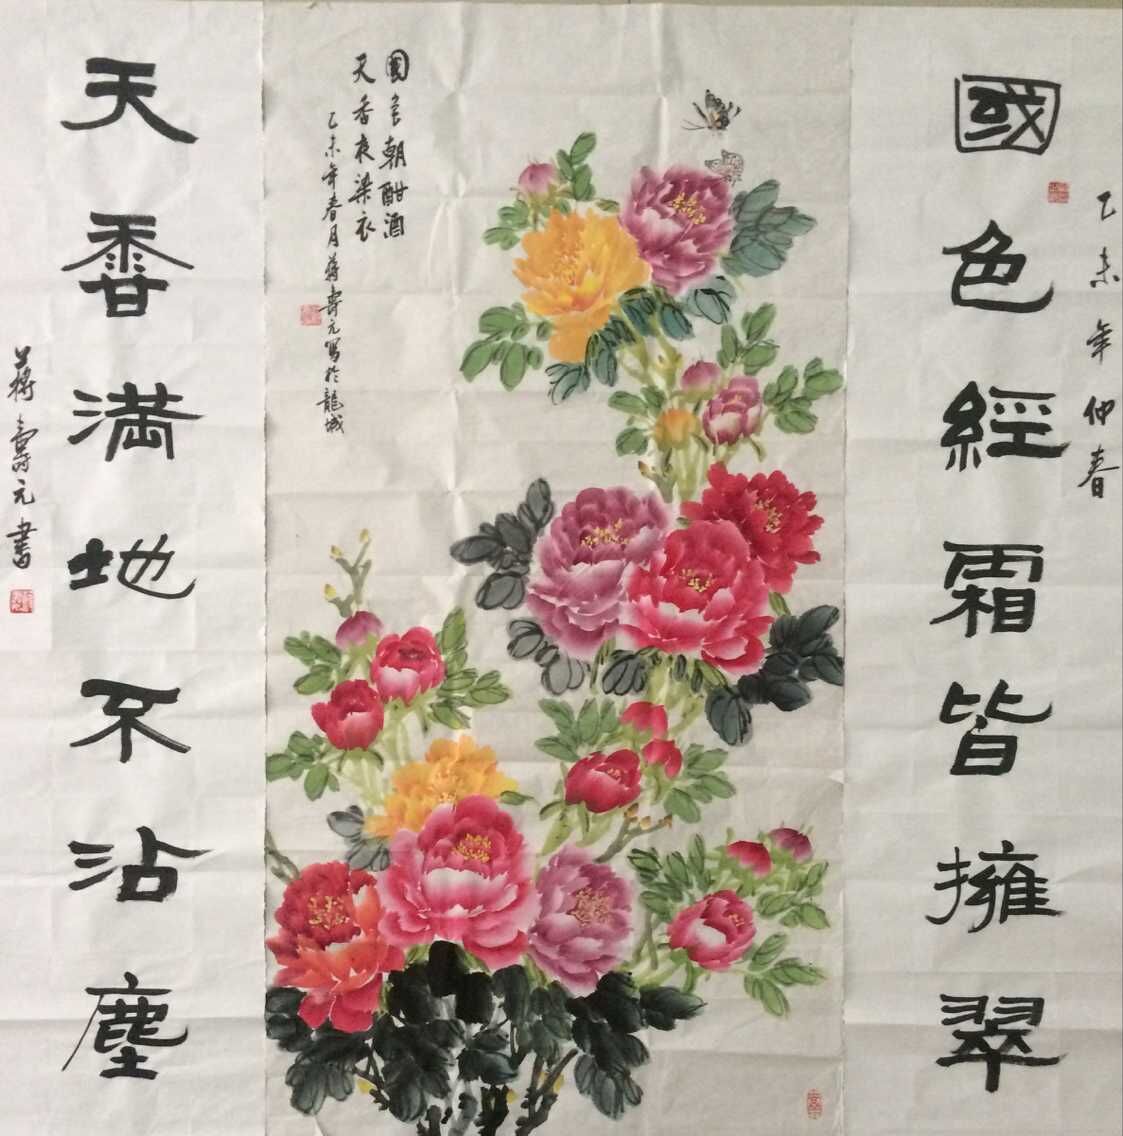 乙未年仲春
國色經霜皆擁翠
國色朝酣酒
天香夜染衣
乙未年春月蔣壽元寫於龍城
天香満地不沾塵
蔣壽元書